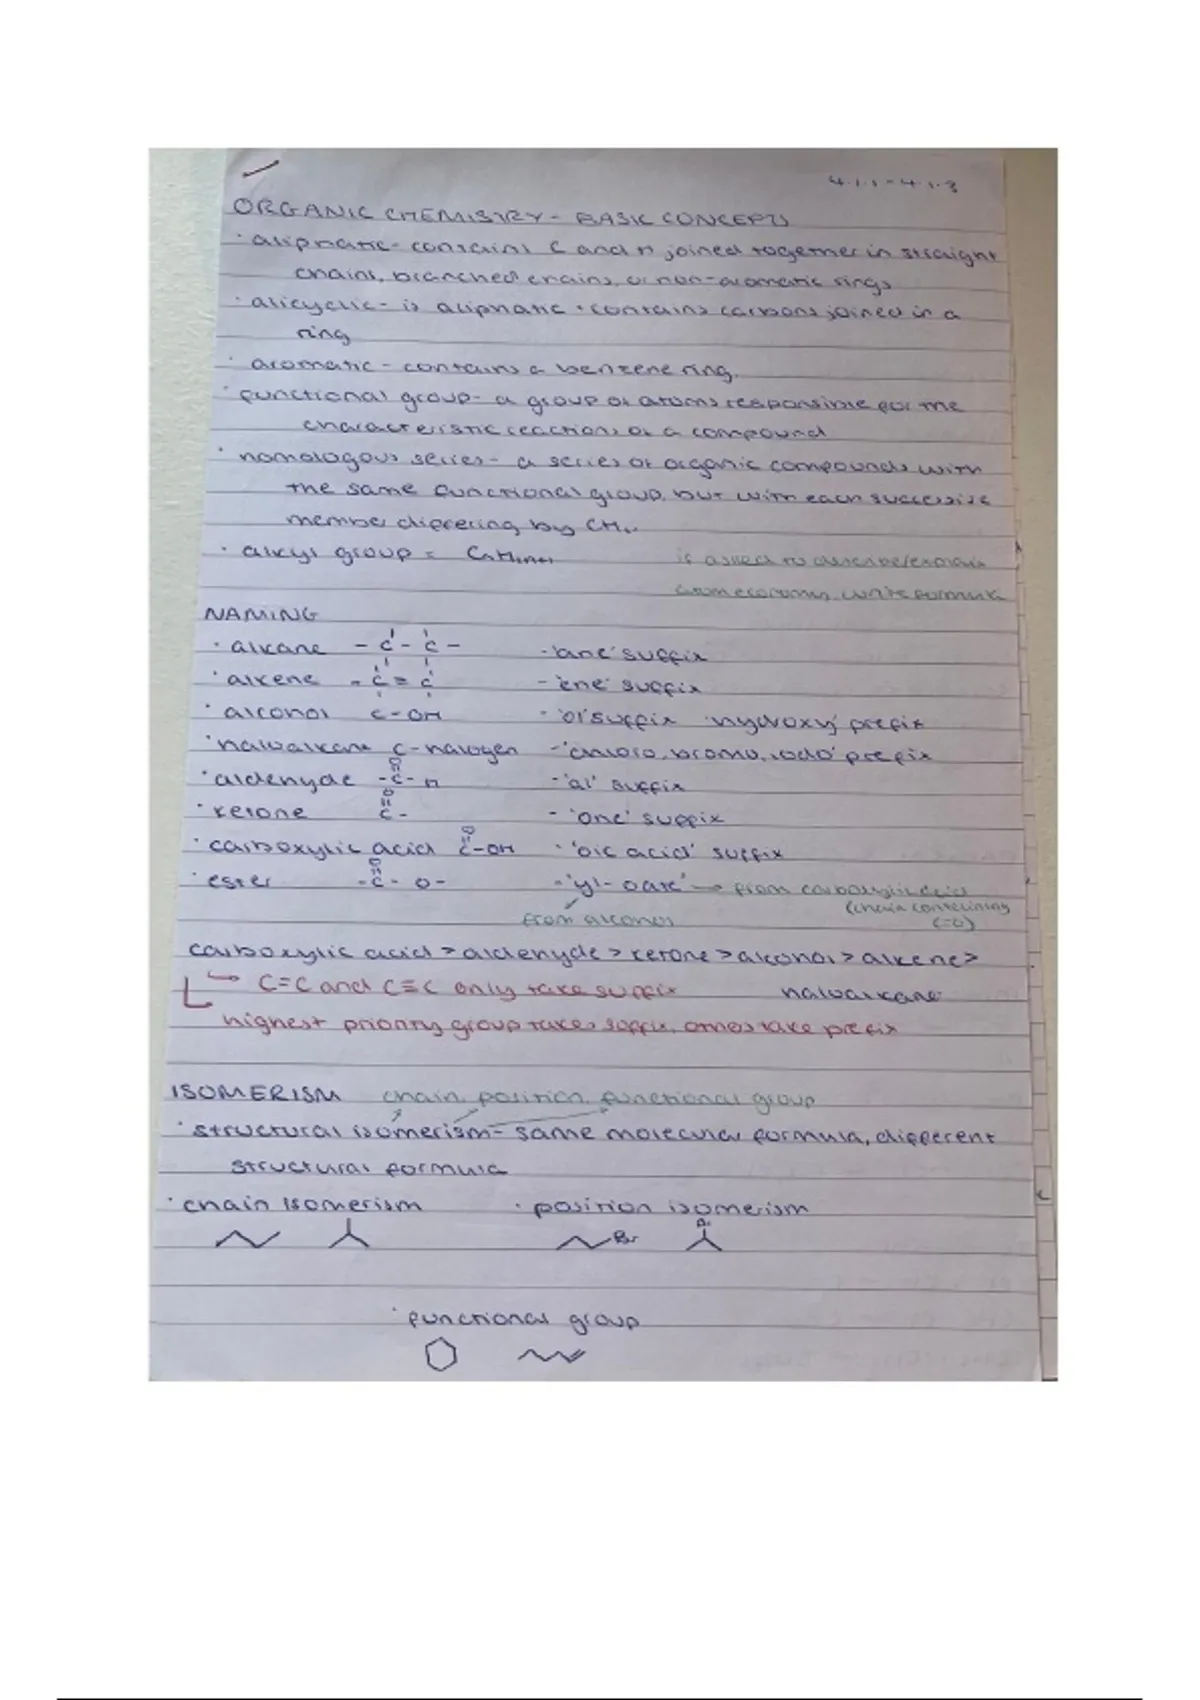 4.1.1-4.1.3
ORGANIC CHEMISTRY - BASIC CONCEPTS
· aliphatic - contains C and H joined together in straight
chains, branched chains, or non-aromatic rings
· alicyclic - is aliphatic + contains carbons joined in a
ring
· aromatic - contains a benzene ring.
· functional group - a group of atoms responsible for the
characteristic reactions of a compound
· homologous series - a series of organic compounds with
the same functional group, but with each successive
member differing by CH₂.
· alkyl group = CnH2n+1
if asked to describe/explain
atom economy, write formula
NAMING
· alkane - C - C - - 'ane' suffix
· alkene - C = C - 'ene' suffix
· alcohol C - OH - 'ol' suffix 'hydroxy' prefix
· haloalkane C - halogen - 'chloro, bromo, iodo' prefix
· aldehyde O - C - H - 'al' suffix
· ketone O C - - 'one' suffix
· carboxylic acid O C - OH - 'oic acid' suffix
· ester O - C - O - - 'yl - oate' → from carboxylic acid
(chain containing
C=O)
from alcohol
carboxylic acid > aldehyde > ketone > alcohol > alkene >
haloalkane
→ C=C and C≡C only take suffix
highest priority group takes suffix, others take prefix
ISOMERISM chain, position, functional group
· structural isomerism - same molecular formula, different
structural formula
· chain isomerism · position isomerism
Br Br
· functional group